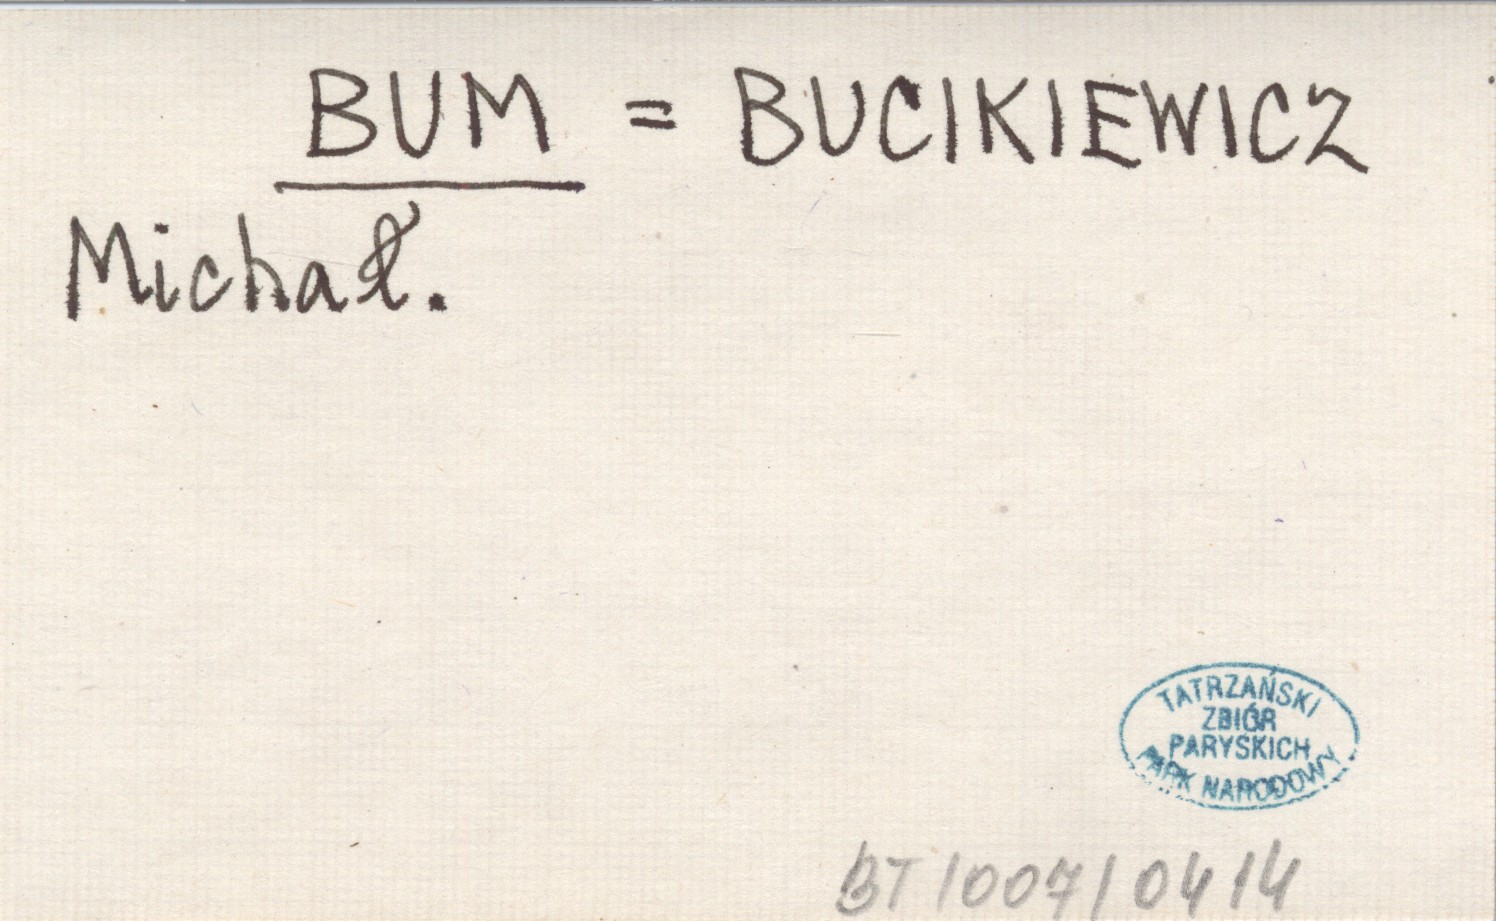 BUM = BUCIKIEWICZ
Michał.
TATRZAŃSKI
ZBIÓR
PARYSKICH
PARK NARODOWY
BT/007/0414